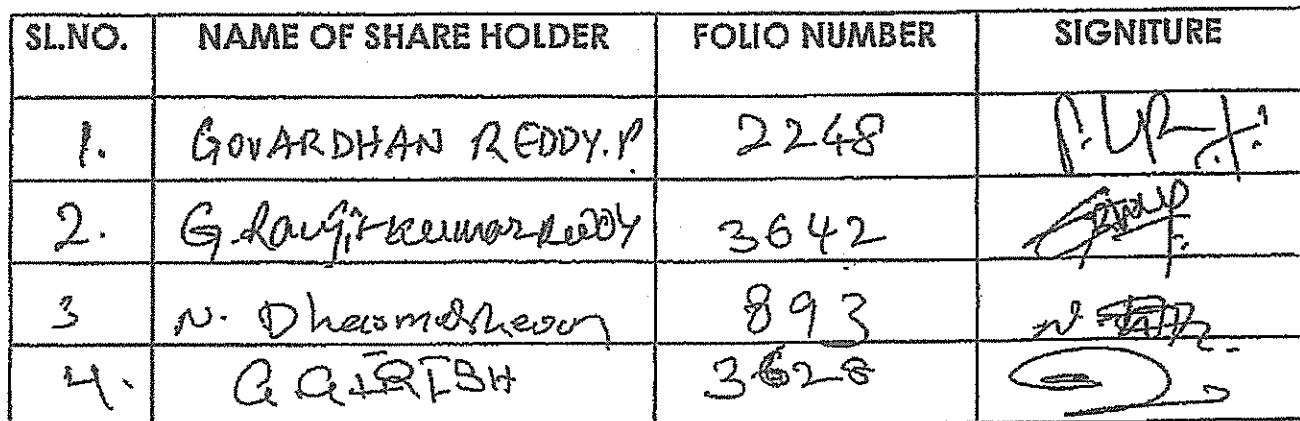 SL.NO. NAME OF SHARE HOLDER FOLIO NUMBER SIGNITURE
1. GOVARDHAN REDDY.P 2248
2. G. Ranjit kumar Reddy 3642
3 N. 893
4. G GIRISH 3628